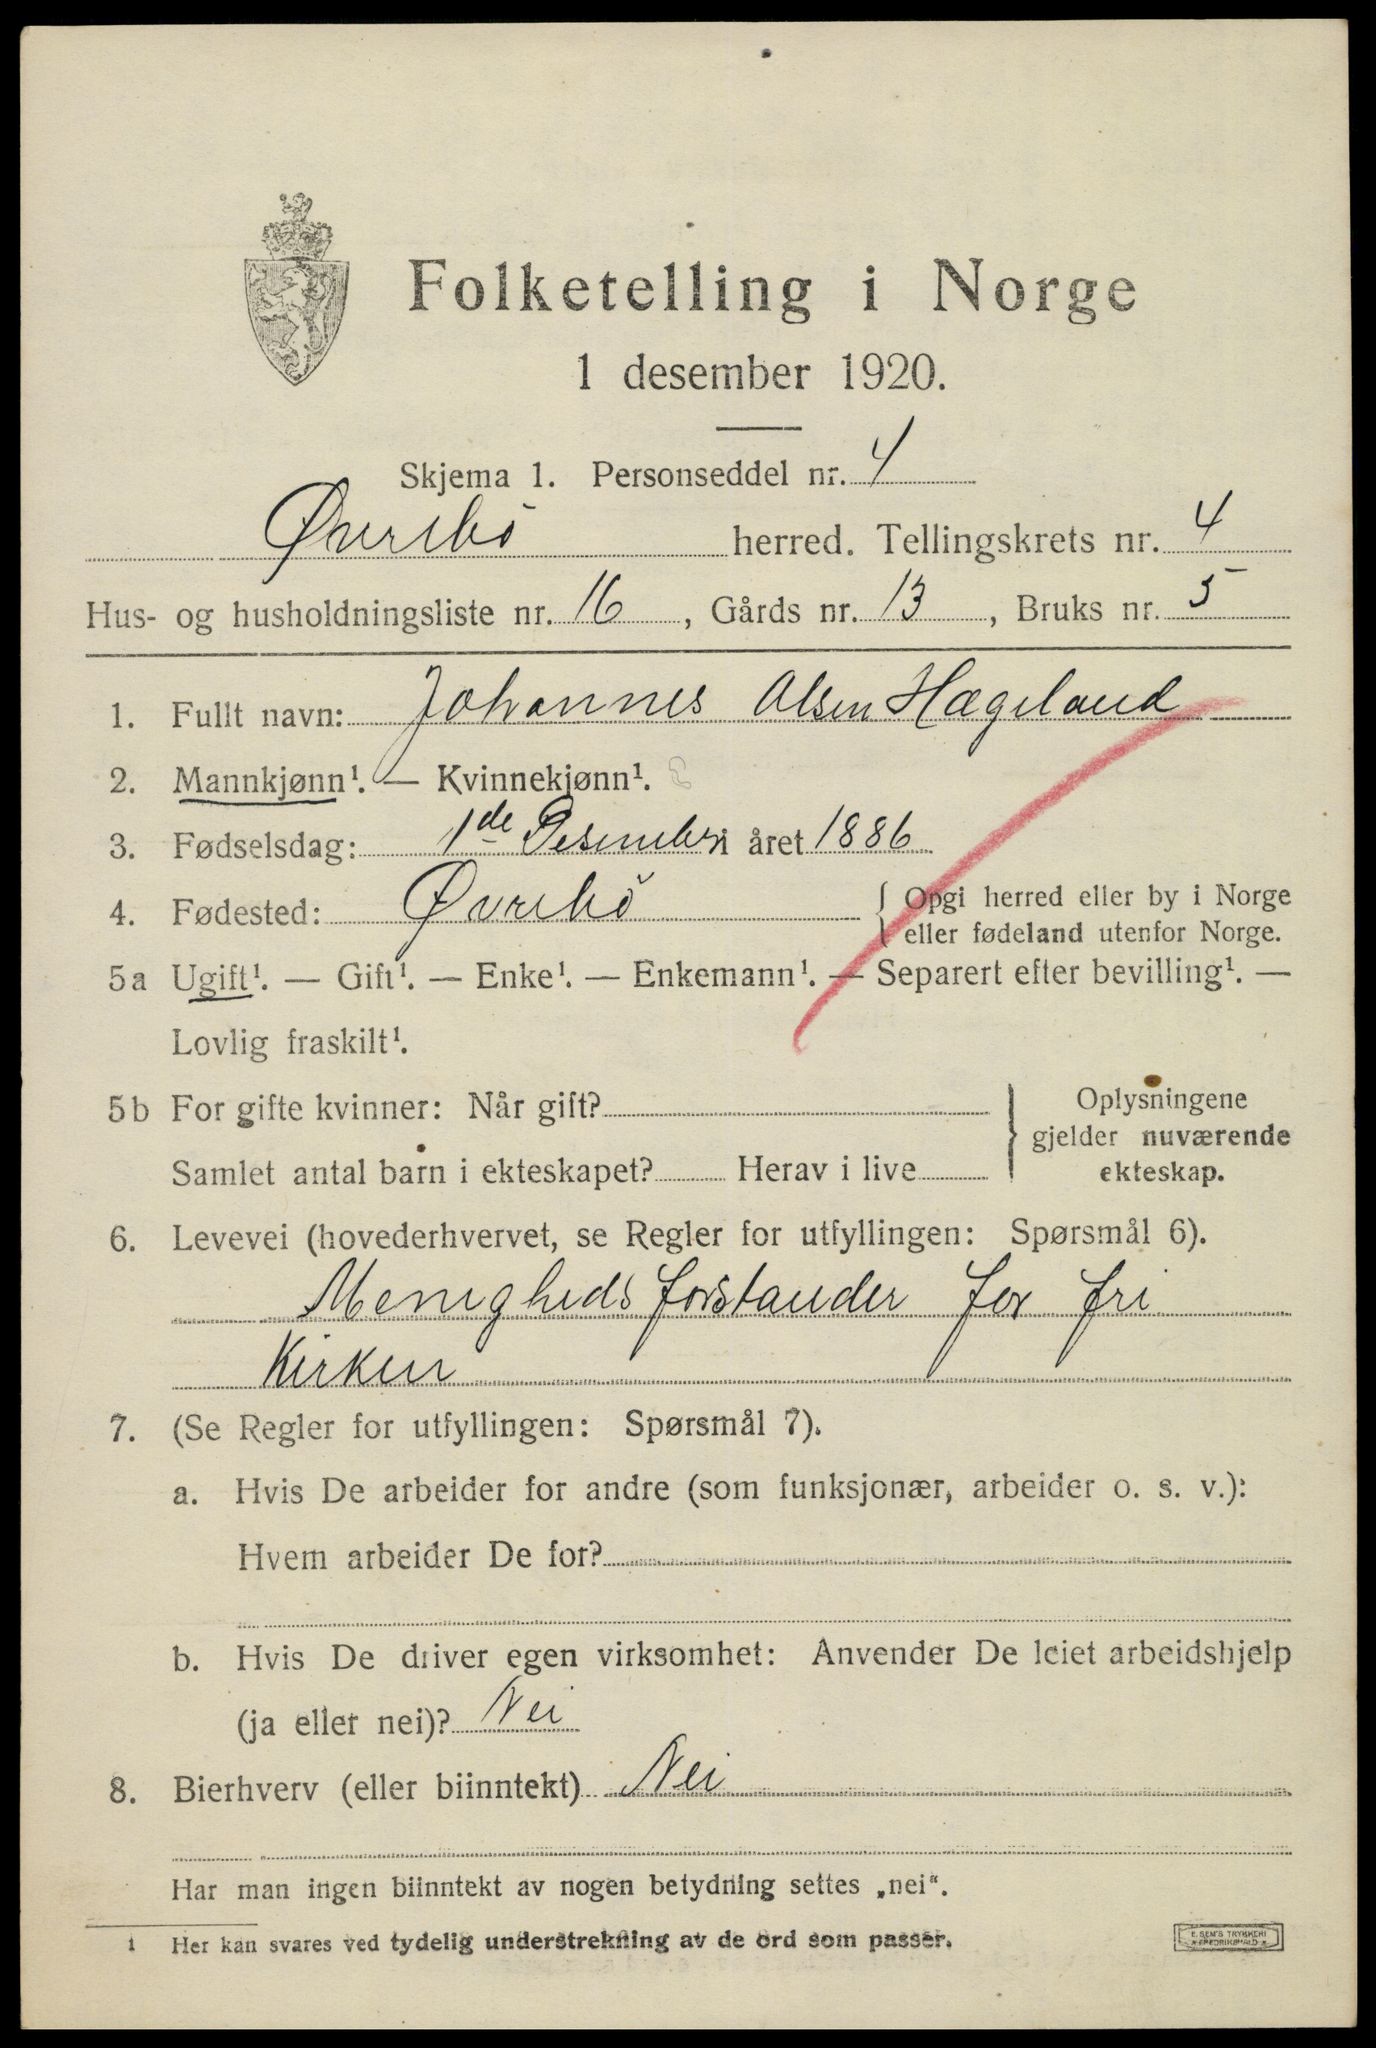 Folketelling i Norge
1 desember 1920.
Skjema 1. Personseddel nr. 4
Øvrebö herred. Tellingskrets nr. 4
Hus- og husholdningsliste nr. 16, Gårds nr. 13, Bruks nr. 5
1. Fullt navn: Johannes Olsen Hægeland
2. Mannkjønn¹. — Kvinnekjønn¹.
3. Fødselsdag: 1de Desember i året 1886
4. Fødested: Øvrebö { Opgi herred eller by i Norge
eller fødeland utenfor Norge.
5a Ugift¹. — Gift¹. — Enke¹. — Enkemann¹. — Separert efter bevilling¹. —
Lovlig fraskilt¹.
5b For gifte kvinner: Når gift? } Oplysningene
gjelder nuværende
Samlet antal barn i ekteskapet? Herav i live ekteskap.
6. Levevei (hovederhvervet, se Regler for utfyllingen: Spørsmål 6).
Menigheds forstander for fri
Kirken
7. (Se Regler for utfyllingen: Spørsmål 7).
a. Hvis De arbeider for andre (som funksjonær, arbeider o. s. v.):
Hvem arbeider De for?
b. Hvis De driver egen virksomhet: Anvender De leiet arbeidshjelp
(ja eller nei)? Nei
8. Bierhverv (eller biinntekt) Nei
Har man ingen biinntekt av nogen betydning settes „nei“.
1 Her kan svares ved tydelig understrekning av de ord som passer.
E. SEM'S TRYKKERI
FREDRIKSHALD